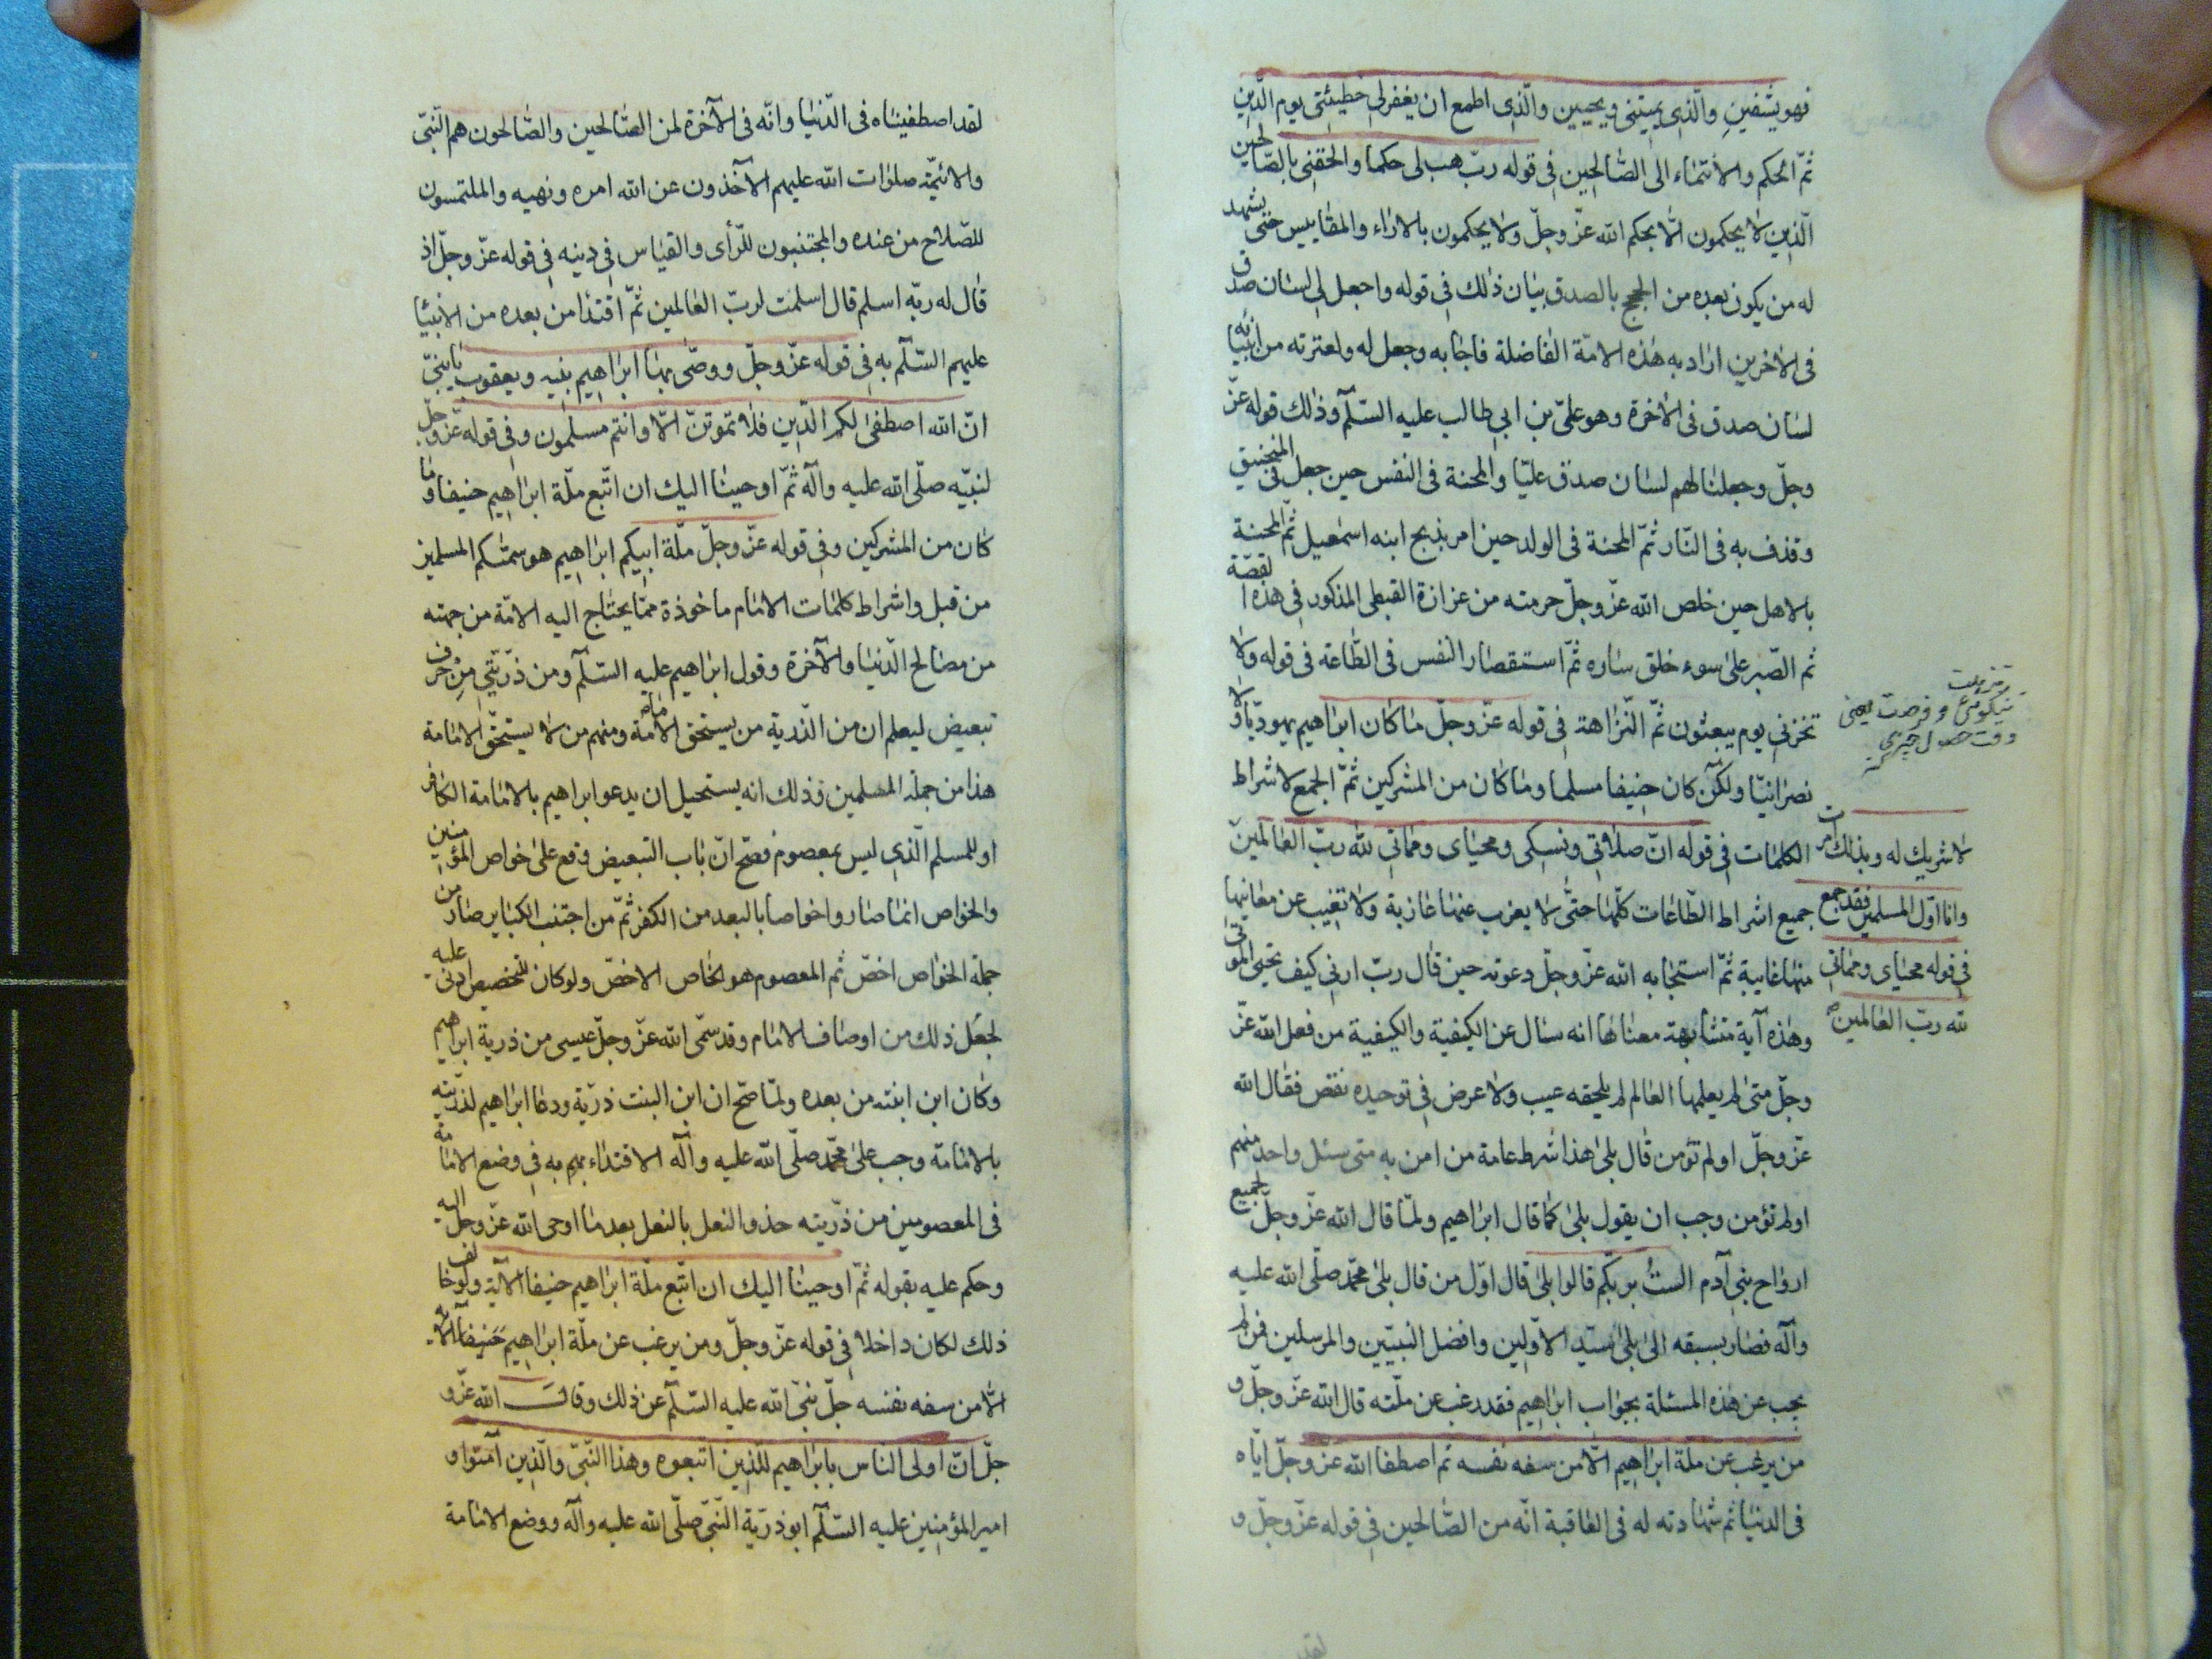 فهو يشفين والذى يميتنى ويحيين والذى اطمع ان يغفر لى خطيئتى يوم الدين
ثمّ الحكم والانتماء الى الصّالحين فى قوله ربّ هب لى حكما والحقنى بالصّالحين
الّذين لا يحكمون الّا بحكم الله عزّ وجلّ ولا يحكمون بالاراء والمقاييس حتى يشهد
له من يكون بعده من الحجج بالصدق بيان ذلك فى قوله واجعل لى لسان صدق
فى الاخرين اراد به هذه الامّة الفاضلة فاجابه وجعل له ولعترته من انبيائه
لسان صدق فى الاخرة وهو علىّ بن ابى طالب عليه السّلم وذلك قوله عزّ
وجلّ وجعلنا لهم لسان صدق عليّا والمحنة فى النفس حين جعل فى المنجنيق
وقذف به فى النّار ثمّ المحنة فى الولد حين امر بذبح ابنه اسمعيل ثمّ المحنة
بالاهل حين خلص الله عزّ وجلّ حرمته من عزازة القبطى المذكور فى هذه القصّة
ثم الصّبر على سوء خلق ساره ثمّ استقصار النفس فى الطّاعة فى قوله ولا
تخزنى يوم يبعثون ثمّ النّزاهة فى قوله عزّ وجلّ ما كان ابراهيم يهوديّا ولا
نصرانيّا ولكن كان حنيفا مسلما وما كان من المشركين ثمّ الجمع لاشراط
الكلمات فى قوله انّ صلاتى ونسكى ومحياى ومماتى لله ربّ العالمين
لا شريك له وبذلك امرت
وانا اوّل المسلمين فقد جمع
فى قوله محياى ومماتى
لله ربّ العالمين
جميع اشراط الطّاعات كلّها حتّى لا يعزب عنها عازبة ولا تغيب عن معانيها
منها غايبة ثمّ استجابه الله عزّ وجلّ دعوته حين قال ربّ ارنى كيف تحيى الموتى
وهذه آية متشابهة معناها انه سال عن الكيفية والكيفية من فعل الله عزّ
وجلّ متى لم يعلمها العالم لم يلحقه عيب ولا عرض فى توحيده نقص فقال الله
عزّ وجلّ اولم تؤمن قال بلى هذا شرط عامة من امن به متى سئل واحد منهم
اولم تؤمن وجب ان يقول بلى كما قال ابراهيم ولمّا قال الله عزّ وجلّ لجميع
ارواح بنى آدم الستُ بربكم قالوا بلى قال اوّل من قال بلى محمّد صلّى الله عليه
وآله فصار بسبقه الى بلى سيّد الاوّلين وافضل النبيّين والمرسلين فمن لم
يجب عن هذه المسئلة بجواب ابراهيم فقد رغب عن ملّته قال الله عزّ وجلّ و
من يرغب عن ملّة ابراهيم الّا من سفه نفسه ثم اصطفا الله عزّ وجلّ ايّاه
فى الدنيا ثم شهادته له فى العاقبة انّه من الصّالحين فى قوله عزّ وجلّ و
لقد اصطفيناه فى الدّنيا وانّه فى الآخرة لمن الصّالحين والصّالحون هم النّبىّ
والائمّة صلوات الله عليهم الآخذون عن الله امره ونهيه والملتمسون
للصّلاح من عنده والمجتنبون للرّأى والقياس فى دينه فى قوله عزّ وجلّ اذ
قال له ربّه اسلم قال اسلمت لربّ العالمين ثمّ اقتدا من بعده من الانبيا
عليهم السّلم به فى قوله عزّ وجلّ ووصّى بها ابراهيم بنيه ويعقوب يا بنىّ
انّ الله اصطفى لكم الدّين فلا تموتنّ الّا وانتم مسلمون وفى قوله عزّ وجلّ
لنبيّه صلّى الله عليه وآله ثمّ اوحينا اليك ان اتّبع ملّة ابراهيم حنيفا وما
كان من المشركين وفى قوله عزّ وجلّ ملّة ابيكم ابراهيم هو سمّٰكم المسلمين
من قبل واشراط كلمات الامام ماخوذة ممّا يحتاج اليه الامّة من جهته
من مصالح الدّنيا والآخرة وقول ابراهيم عليه السّلم ومن ذرّيّتى مِن حرف
تبعيض ليعلم ان من الذّرية من يستحق الامامة ومنهم من لا يستحقّ الامامة
هذا من جملة المسلمين وذلك انه يستحيل ان يدعو ابراهيم بالامامة الكافر
او للمسلم الّذى ليس بمعصوم فصحّ انّ باب التبعيض وقع على خواص المؤمنين
والخواص انما صاروا خواصا بالبعد من الكفر ثمّ من اجتنب الكباير صار من
جملة الخواص اخصّ ثم المعصوم هو الخاص الاخصّ ولو كان للتخصيص ادنى عليه
لجعل ذلك من اوصاف الامام وقد سمّى الله عزّ وجلّ عيسى من ذرية ابراهيم
وكان ابن ابنته من بعده ولمّا صحّ ان ابن البنت ذرّية ودعا ابراهيم لذرّيته
بالامامة وجب على محمّد صلّى الله عليه وآله الاقتداء به فى وضع الامامة
فى المعصومين من ذرّيته حذو النعل بالنعل بعد ما اوحى الله عزّ وجلّ اليه
وحكم عليه بقوله ثمّ اوحينا اليك ان اتّبع ملّة ابراهيم حنيفا الآية ولو خالف
ذلك لكان داخلا فى قوله عزّ وجلّ ومن يرغب عن ملّة ابراهيم
الّا من سفه نفسه جلّ نبىّ الله عليه السّلم عن ذلك وقال الله عزّ و
جلّ انّ اولى الناس بابراهيم للّذين اتّبعوه وهذا النّبىّ والّذين آمنوا و
امير المؤمنين عليه السّلم ابو ذرّية النّبىّ صلّى الله عليه وآله ووضع الامامة